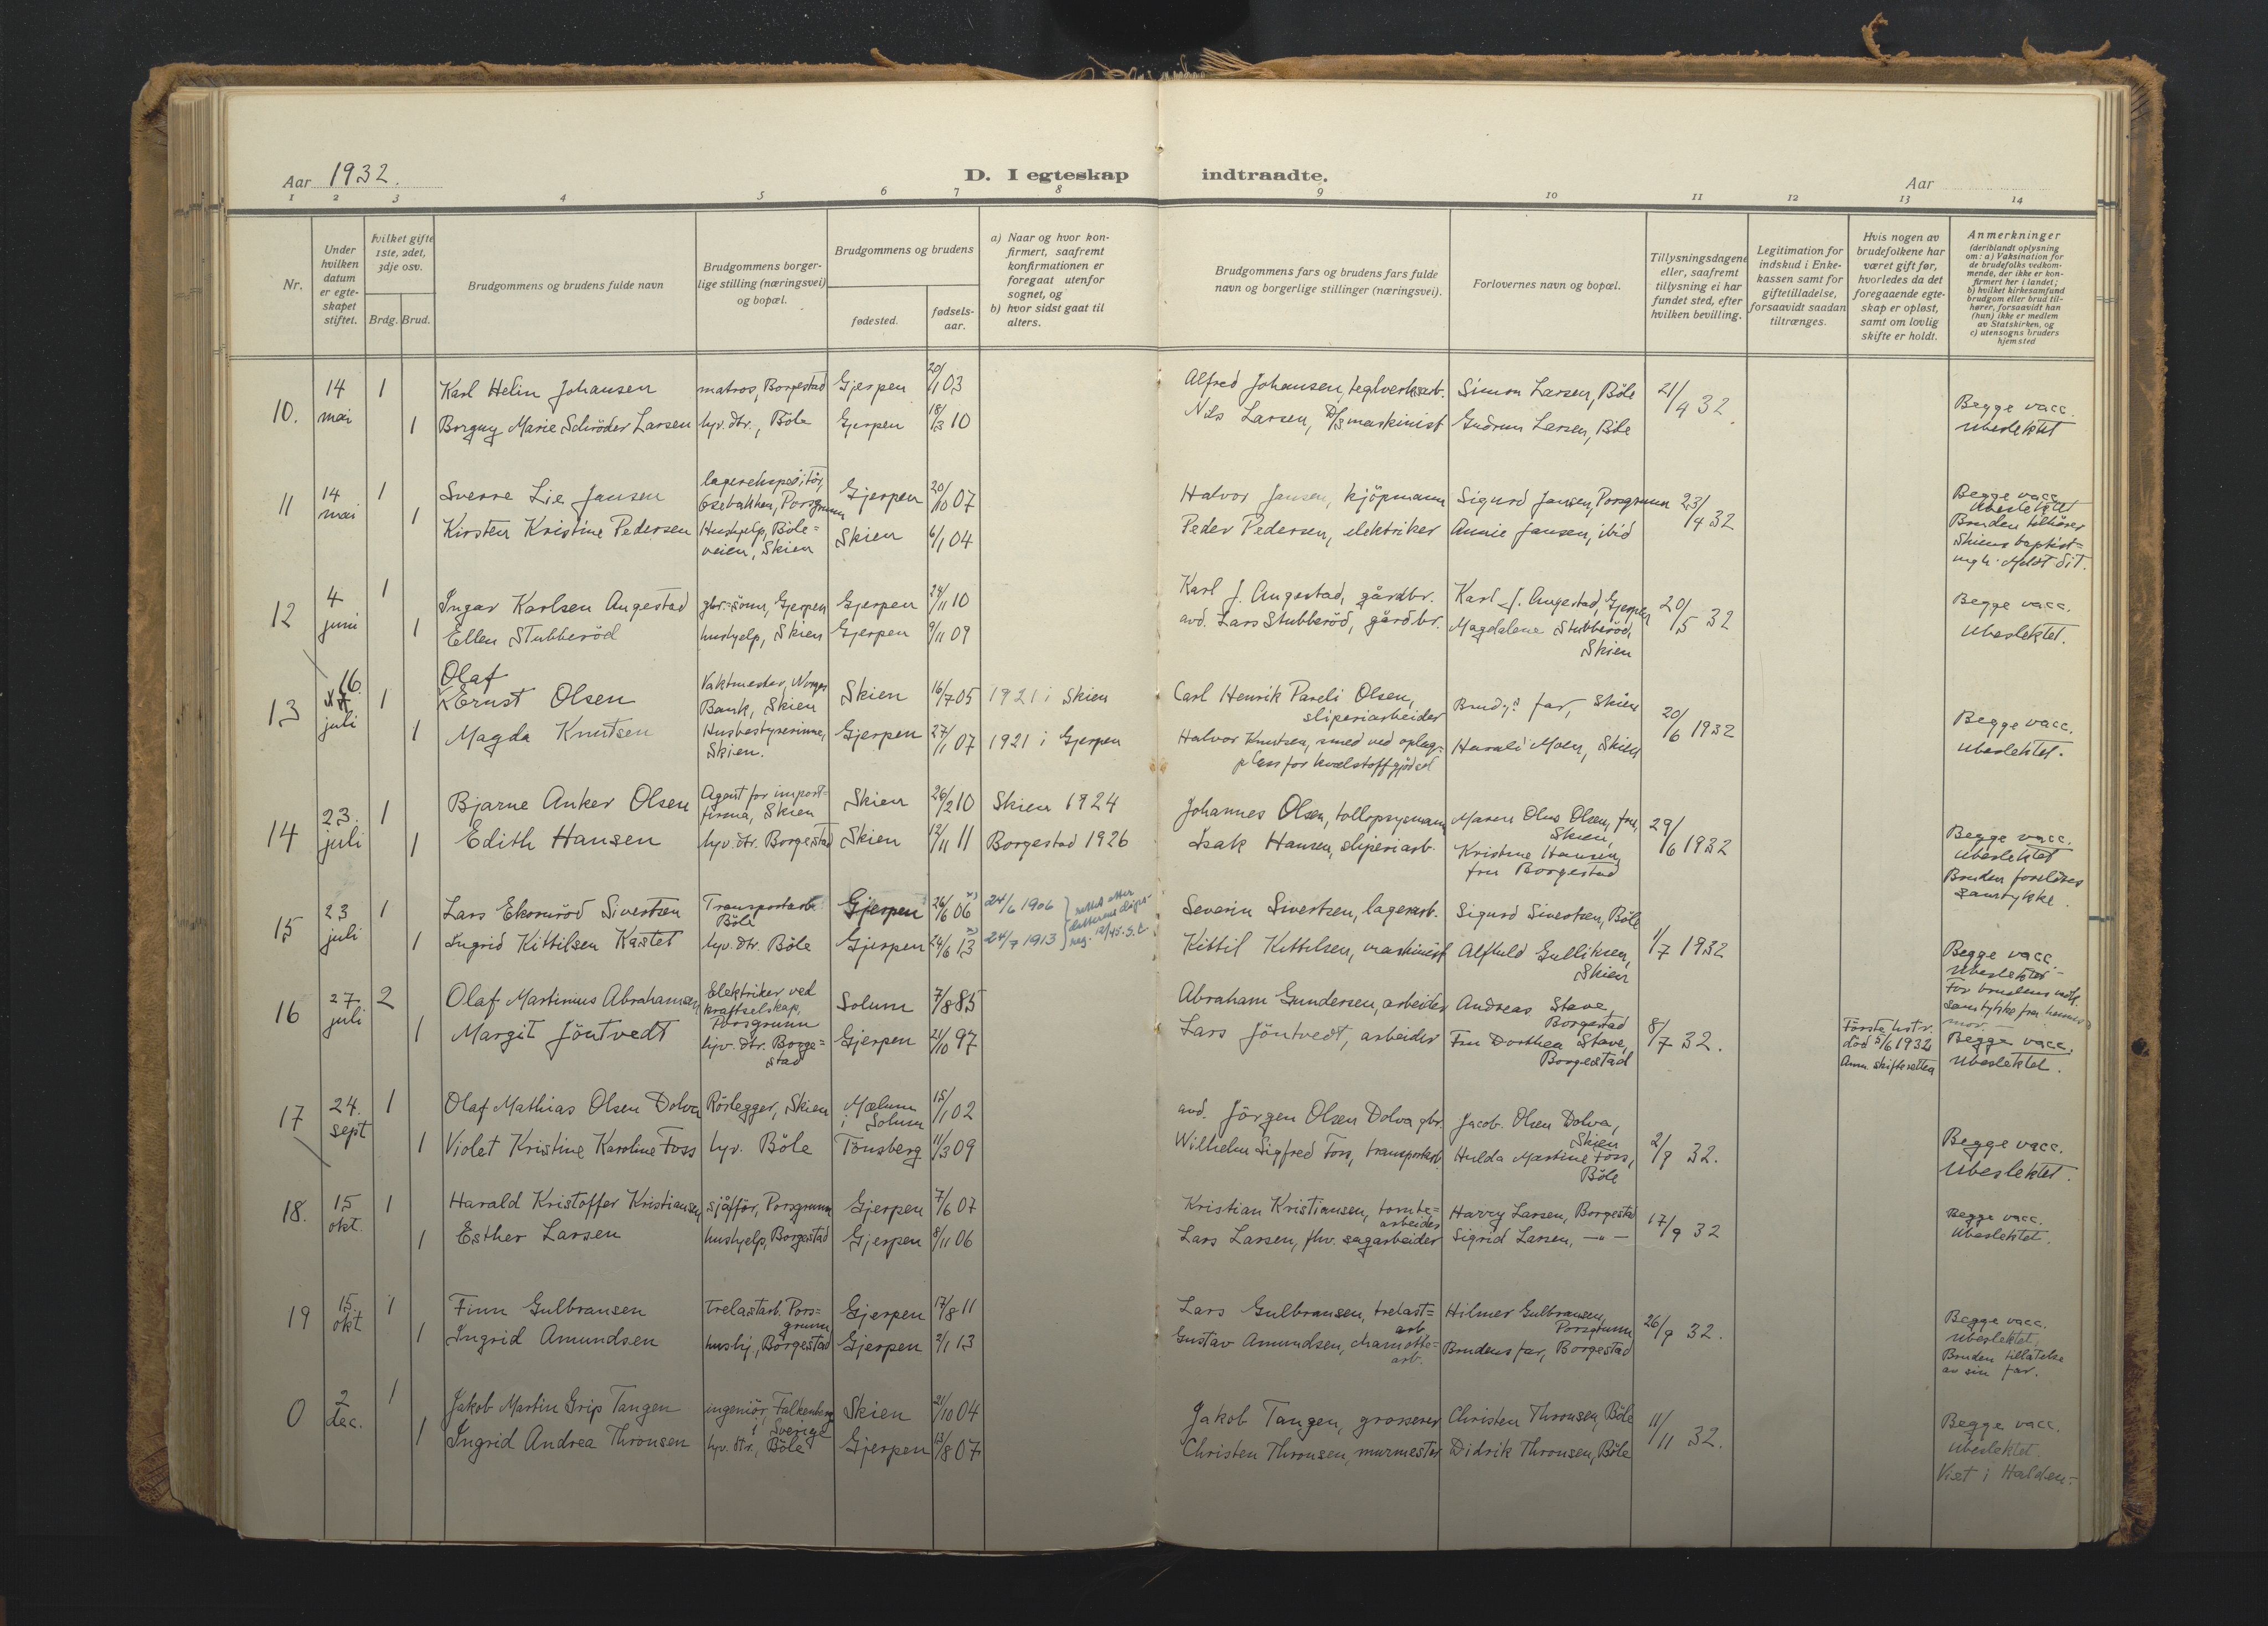 Aar 1932.
D. I egteskap indtraadte.
Aar
1 2 3 4 5 6 7 8 9 10 11 12 13 14
Nr.
Under hvilken datum er egteskapet stiftet.
Hvilket gifte 1ste, 2det, 3dje osv.
Brdg. Brud.
Brudgommens og brudens fulde navn
Brudgommens borger-
lige stilling (næringsvei)
og bopæl.
Brudgommens og brudens
fødested.
fødsels-
aar.
a) Naar og hvor kon-
firmert, saafremt
konfirmationen er
foregaat utenfor
sognet, og
b) hvor sidst gaat til
alters.
Brudgommens fars og brudens fars fulde
navn og borgerlige stillinger (næringsvei).
Forlovernes navn og bopæl.
Tillysningsdagene
eller, saafremt
tillysning ei har
fundet sted, efter
hvilken bevilling.
Legitimation for
indskud i Enke-
kassen samt for
giftetilladelse,
forsaavidt saadan
tiltrænges.
Hvis nogen av
brudefolkene har
været gift før,
hvorledes da det
foregaaende egte-
skap er opløst,
samt om lovlig
skifte er holdt.
Anmerkninger
(deriblandt oplysning
om: a) Vaksination for
de brudefolks vedkom-
mende, der ikke er kon-
firmert her i landet;
b) hvilket kirkesamfund
brudgom eller brud til-
hører, forsaavidt han
(hun) ikke er medlem
av Statskirken, og
c) utensogns bruders
hjemsted
10. 14 mai 1 Karl Helin Johansen matros, Borgestad Gjerpen 20/1 03 Alfred Johansen, teglverksarb. Simon Larsen, Böle 21/4 32
1 Borgny Marie Schröder Larsen hjv. dtr., Böle Gjerpen 18/3 10 Nils Larsen, D/S maskinist Gudrun Larsen, Böle
Begge vacc.
Ubeslektet
11 14 mai 1 Sverre Lie Jansen lagerekspeditör, Osebakken, Porsgrunn Gjerpen 20/10 07 Halvor Jansen, kjöpmann Sigurd Jansen, Porsgrunn 23/4 32
1 Kirsten Kristine Pedersen Hushjelp, Böle=
veien, Skien Skien 6/1 04 Peder Pedersen, elektriker Annie Jansen, ibid
Begge vacc.
Ubeslektet
Bruden tilhører
Skiens baptist=
mgh. Meldt dit.
12 4 juni 1 Ingar Karlsen Augestad gbr.=sönn, Gjerpen Gjerpen 24/11 10 Karl J. Augestad, gårdbr. Karl J. Augestad, Gjerpen 20/5 32
1 Ellen Stubberöd hushjelp, Skien Gjerpen 9/11 09 avd. Lars Stubberöd, gårdbr. Magdalene Stubberöd, Skien
Begge vacc.
Ubeslektet.
13 16. juli 1 Olaf
Ernst Olsen Vaktmester, Norges
Bank, Skien Skien 16/7 05 1921 i Skien Carl Henrik Pareli Olsen,
sliperiarbeider Brudg.s far, Skien 20/6 1932
1 Magda Knutsen Husbestyrerinne,
Skien. Gjerpen 27/1 07 1921 i Gjerpen Halvor Knutsen, smed ved oplag=
plass for kvælstoffgjödsel Harald Moen, Skien
Begge vacc.
Ubeslektet.
14 23. juli 1 Bjarne Anker Olsen Agent for import=
firma, Skien Skien 26/2 10 Skien 1924 Johannes Olsen, tollopsynsmann Maren Olus Olsen, fru,
Skien, 29/6 1932
1 Edith Hansen hjv. dtr. Borgestad Skien 12/11 11 Borgestad 1926 Isak Hansen, sliperiarb. Kristine Hansen,
fru Borgestad
Begge vacc.
Ubeslektet
Bruden foreldres
samtykke.
15 23 juli 1 Lars Ekornröd Sivertsen Transportarb.
Böle Gjerpen 26/6 06 24/6 1906 Severin Sivertsen, lagerarb. Sigurd Sivertsen, Böle 1/7 1932
1 Ingrid Kittilsen Kastet hjv. dtr. Böle Gjerpen 24/6 13 24/7 1913 Kittil Kittilsen, maskinist Alfhild Gulliksen,
Skien
Begge vacc.
Ubeslektet
For brudens vedk.
samtykke fra hennes
mor.
16 27 juli 2 Olaf Martinius Abrahamsen Elektriker ved
kraftselskap,
Porsgrunn Solum 7/8 85 Abraham Gundersen, arbeider Andreas Stave
Borgestad 8/7 32.
1 Margit Jöntvedt hjv. dtr. Borge=
stad Gjerpen 21/10 97 Lars Jöntvedt, arbeider Fru Dorthea Stave,
Borgestad
Förste hstr.
död 5/6 1932
Anm. skifteretten
Begge vacc.
Ubeslektet.
17 24. sept 1 Olaf Mathias Olsen Dolva Rörlegger, Skien Mælum
i Solum 15/1 02 avd. Jörgen Olsen Dolva gbr. Jacob Olsen Dolva,
Skien 2/9 32.
1 Violet Kristine Karoline Foss hjv. Böle Tönsberg 11/3 09 Wilhelm Sigfred Foss, transportarb. Hulda Martine Foss,
Böle
Begge vacc.
Ubeslektet.
18. 15 okt. 1 Harald Kristoffer Kristiansen sjåför, Porsgrunn Gjerpen 7/6 07 Kristian Kristiansen, tomte=
arbeider Harry Larsen, Borgestad 17/9 32
1 Esther Larsen hushjelp, Borgestad Gjerpen 8/11 06 Lars Larsen, fhv. sagarbeider Sigrid Larsen, —"—
Begge vacc.
Ubeslektet.
19 15. okt 1 Finn Gulbransen Trelastarb. Pors=
grunn Gjerpen 17/8 11 Lars Gulbransen, trelast=
arb. Hilmer Gulbransen,
Porsgrunn 26/9 32.
1 Ingrid Amundsen hushj., Borgestad Gjerpen 2/1 13 Gustav Amundsen, chamotte=
arb. Brudens far, Borgestad
Begge vacc.
Ubeslektet,
Bruden tillatelse
av sin far.
0 2 dec. 1 Jakob Martin Grip Tangen ingeniör, Falkenberg
i Sverige Skien 21/10 04 Jakob Tangen, grosserer Christen Thronsen, Böle 11/11 32.
1 Ingrid Andrea Thronsen hjv. dtr., Böle Gjerpen 13/8 07 Christen Thronsen, murmester Didrik Thronsen, Böle
Begge vacc.
Ubeslektet
Viet i Halden.